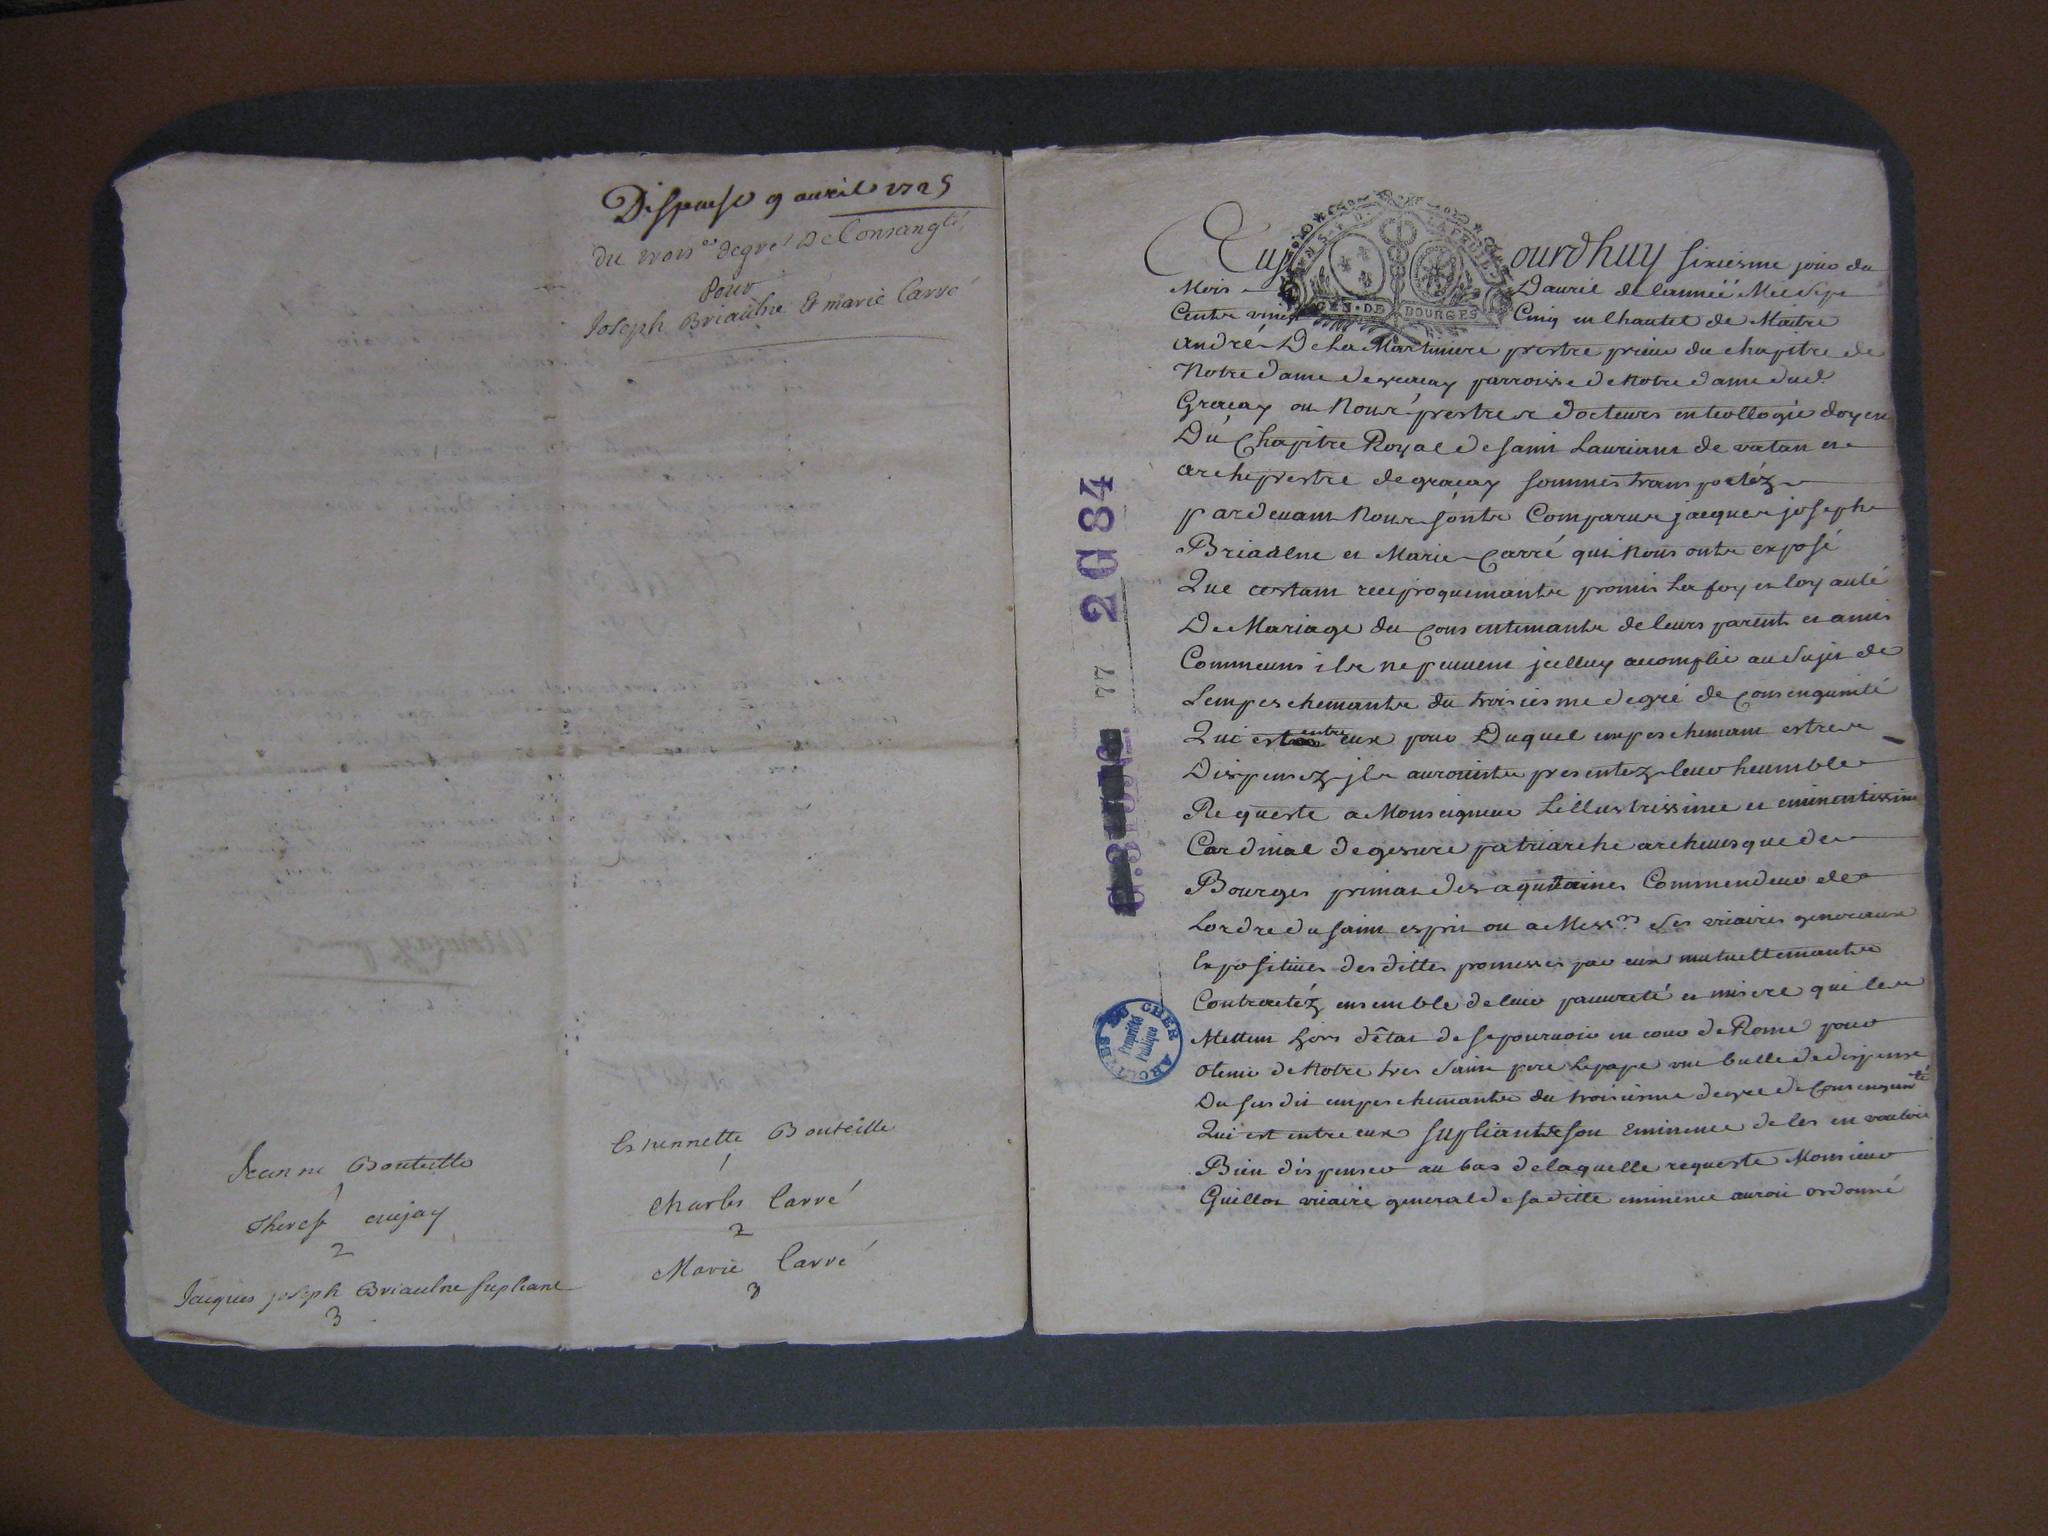 Dispense 9 auril 1725
du trois.e degré De Consang.té
Pour
Joseph Briaulne Et marie Carré
Jeanne Bouteille
1
Therese aujay
2
Jacques joseph Briaulne supliant
3
Estiennette Bouteille
1
Charles Carré
2
Marie Carré
3
2 G 84
77
ARCHIVES DU CHER
Propriété
Publique
GEN. DE BOURGES
Aujourdhuy sixiesme jour du
Mois Dauril de lanneé Mil Sept
Cents vingt Cinq en Lhautel de Maitre
andré De La Martiniere prestre prieur du chapitre de
Notre dame de gracay parroisse de Notre dame dud.
Gracay ou Nous prestre docteurs en teollogie doyen
Du Chapitre Royal de saint Laurians de vatan et
archiprestre de gracay sommes transportéz
pardeuant Nous sonts Comparus jacques joseph
Briaulne et Marie Carré qui Nous onts exposé
Que cestant reciproquemants promis La foy et loyauté
De Mariage du Consentemants de leurs parents et amis
Commeuns ils ne peuuent jcelluy acomplir au Sujet de
Lempeschemants du troisiesme degré de Consenguinité
Qui est entre eux pour Duquel empeschemant estre
Dispensez jls auroints presentez leur heumble
Requeste a Monseigneur Lillustrissime et eminentissime
Cardinal de gesvre patriarche archeuesque de
Bourges primat des aquitaines Commendeur de
Lordre du saint esprit ou a Mess.rs Ses vicaires generaux
Expositiues des dittes promesses par eux mutuellemants
Contractéz ensemble de leur pauureté et misere qui les
Mettent hors d'état de se pouruoir en cour de Rome pour
Otenir de Notre tres Saint pere Le pape une bulle de dispense
Du sus dit empeschemants du troisiesme degre de Consenguinité
Qui est entre eux supliants son Eminence de les en vouloir
Bien dispenser au bas de laquelle requeste Monsieur
Guillot vicaire general de sa ditte eminence auroit ordonné